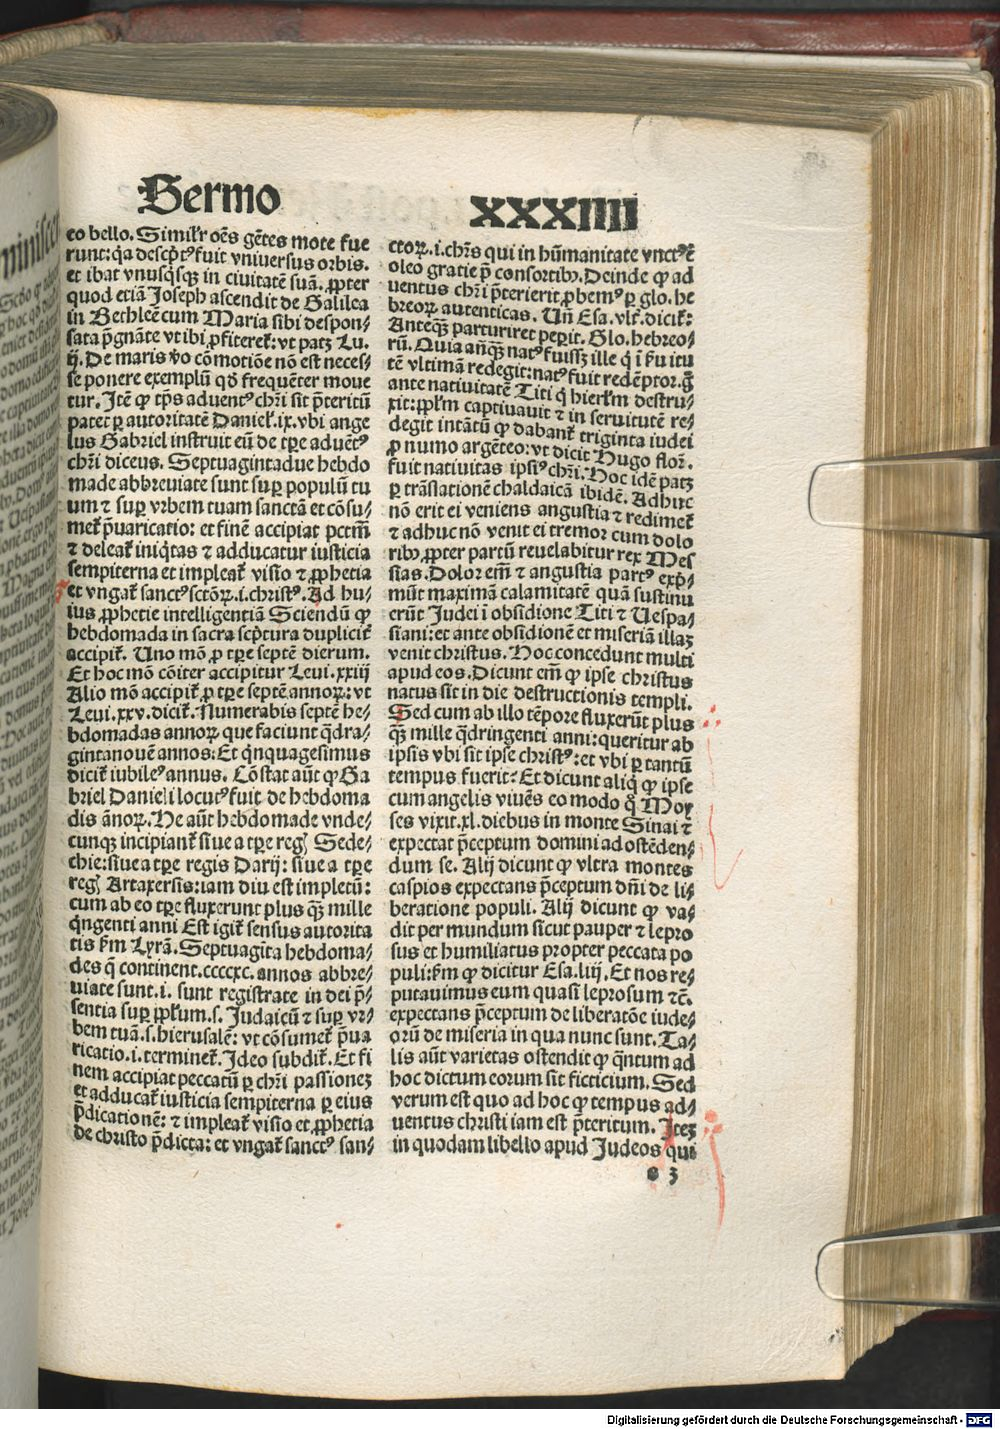 Sermo XXXIIII
eo bello. Simil'r oēs gētes mote fue
runt: q̄a descpt' fuit vniuersus orbis.
et ibat vnusq̄sq̢ in ciuitatē suā. ꝓpter
quod etiā Joseph ascendit de Galilea
in Bethleē cum Maria sibi despon⸗
sata p̄gnāte vt ibi ꝓfiteret̄: vt patꝫ Lu.
ij. De maris v̄o cōmotiōe nō est neces⸗
se ponere exemplū qd̄ frequēter moue
tur. Itē ꝙ tp̄s aduent' chr̄i sit p̄teritū
patet ꝑ autoritatē Daniel'. ix. vbi ange
lus Gabriel instruit eū de tꝑe aduēt'
chr̄i dicēs. Septuagintadue hebdo
made abbreuiate sunt suꝑ populū tu
um ⁊ suꝑ vrbem tuam sanctā et cōsu⸗
met̄ p̄uaricatio: et finē accipiat pctm̄
⁊ deleat̄ iniq̄tas ⁊ adducatur iusticia
sempiterna et impleat̄ visio ⁊ ꝓphetia
et vngat̄ sanct' sctōꝝ .i. christ'. Ad hu⸗
ius ꝓphetie intelligentiā Sciendū ꝙ
hebdomada in sacra scp̄tura duplicit̄
accipit̄. Uno mō ꝓ tꝑe septē dierum.
Et hoc mō cōiter accipitur Leui. xxiij
Alio mō accipit̄ ꝓ tꝑe septē annoꝝ: vt
Leui. xxv. dicit̄. Numerabis septē he⸗
bdomadas annoꝝ que faciunt q̄dra⸗
gintanouē annos: Et q̄nquagesimus
dicit̄ iubile' annus. Cōstat aūt ꝙ Ga
briel Danieli locut' fuit de hebdoma
dis ānoꝝ. He aūt hebdomade vnde⸗
cunq̢ incipiant̄ siue a tꝑe reg̃ Sede⸗
chie: siue a tꝑe regis Darij: siue a tꝑe
reg̃ Artaxersis: iam diu est impletū:
cum ab eo tꝑe fluxerunt plus q̄ꝫ mille
q̄ngenti anni Est igit̄ sensus autorita
tis km̄ Lyrā. Septuagīta hebdoma⸗
des q̄ continent. ccccxc. annos abbre⸗
uiate sunt. i. sunt registrate in dei p̄⸗
sentia suꝑ pp̄lum. s. Judaicū ⁊ suꝑ vr⸗
bem tuā. s. hierusalē: vt cōsumet̄ p̄ua
ricatio. i. terminet̄. Ideo subdit̄. Et fi
nem accipiat peccatū ꝑ chr̄i passioneꝫ
et adducat̄ iusticia sempiterna ꝑ eius
p̄dicationē: ⁊ impleat̄ visio et ꝓphetia
de christo p̄dicta: et vngat̄ sanct' san⸗
ctoꝝ. i. chr̄s qui in hūmanitate vnct' ē
oleo gratie p̄ consortibꝰ. Deinde ꝙ ad
uentus chr̄i p̄terierit ꝓbem' ꝑ glo. he
breoꝝ autenticas. Un̄ Esa. vlt̄. dicit̄:
Anteq̄ꝫ parturiret peperit. Glo. hebreo⸗
rū. Quia anq̄ꝫ nat' fuissꝫ ille q̄ i k̄u itu
tē vltimā redegit: nat' fuit redēptor. g̃
ante natiuitatē Titi q̄ hierl'm destru⸗
xit: pp̄l'm captiuauit ⁊ in seruitutē re⸗
degit intātū ꝙ dabant̄ triginta iudei
ꝓ numo argēteo: vt dicit Hugo flor̄.
fuit natiuitas ipsi' chr̄i. Hoc idē patꝫ
ꝑ trāslationē chaldaicā ibidē. Adhuc
nō erit ei veniens angustia ⁊ redimet̄
⁊ adhuc nō venit ei tremor cum dolo
ribꝰ ꝓpter partū reuelabitur rex Mes
sias. Dolor em̄ ⁊ angustia part' exp̄⸗
mūt maximā calamitatē quā sustinu
erūt Judei ī obsidione Titi ⁊ Uespa⸗
siani: et ante obsidionē et miseriā illaꝫ
venit christus. Hoc concedunt multi
apud eos. Dicunt em̄ ꝙ ipse christus
natus sit in die destructionis templi.
Sed cum ab illo tēpore fluxerūt plus
q̄ꝫ mille q̄dringenti anni: queritur ab
ipsis vbi sit ipse christ': et vbi ꝑ tantū
tempus fuerit? Et dicunt aliq̄ ꝙ ipse
cum angelis viuēs eo modo q̊ Moy
ses vixit. xl. diebus in monte Sinai ⁊
expectat p̄ceptum domini ad ostēden⸗
dum se. Alij dicunt ꝙ vltra montes
caspios expectans p̄ceptum dn̄i de li⸗
beratione populi. Alij dicunt ꝙ va⸗
dit per mundum sicut pauper ⁊ lepro
sus et humiliatus propter peccata po
puli: km̄ ꝙ dicitur Esa. liij. Et nos re⸗
putauimus eum quasi leprosum ⁊c̄.
expectans p̄ceptum de liberatōe iude⸗
orū de miseria in qua nunc sunt. Ta⸗
lis aūt varietas ostendit ꝙ q̄ntum ad
hoc dictum eorum sit ficticium. Sed
verum est quo ad hoc ꝙ tempus ad⸗
uentus christi iam est p̄teritum. Iteꝫ
in quodam libello apud Judeos qui
e 3
Digitalisierung gefördert durch die Deutsche Forschungsgemeinschaft - DFG